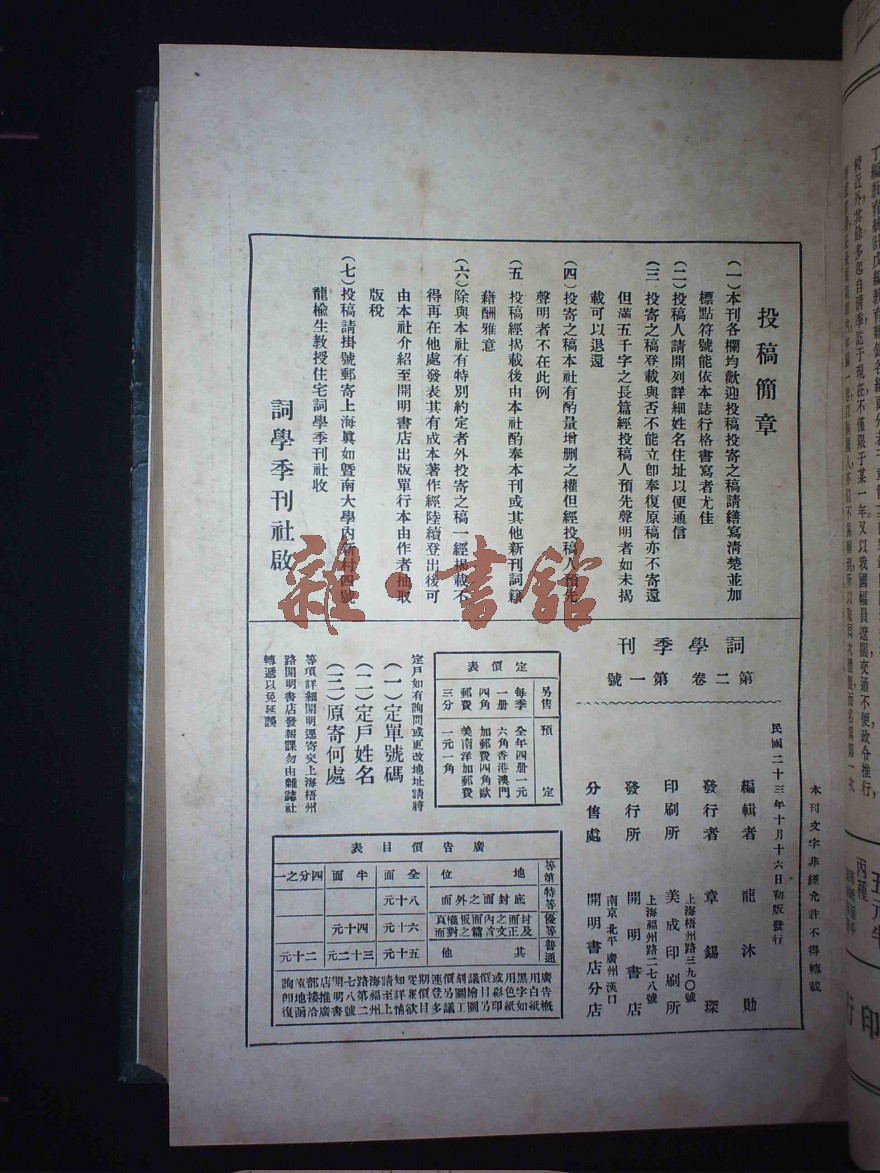 投稿簡章
(一)本刊各欄均歡迎投稿投寄之稿請繕寫淸楚並加
標點符號能依本誌行格書寫者尤佳
(二)投稿人請開列詳細姓名住址以便通信
(三)投寄之稿登載與否不能立卽奉復原稿亦不寄還
但滿五千字之長篇經投稿人預先聲明者如未揭
載可以退還
(四)投寄之稿本社有酌量增删之權但經投稿人預先
聲明者不在此例
(五)投稿經揭載後由本社酌奉本刊或其他新刊詞籍
藉酬雅意
(六)除與本社有特別約定者外投寄之稿一經揭載不
得再在他處發表其有成本著作經陸續登出後可
由本社介紹至開明書店出版單行本由作者抽取
版稅
(七)投稿請掛號郵寄上海眞如暨南大學內新村四號
龍楡生敎授住宅詞學季刊社收
詞學季刊社啟
詞學季刊
第二卷 第一號
民國二十三年十月十六日初版發行
本刊文字非經允許不得轉載
編輯者 龍沐勛
發行者 章錫琛
上海梧州路三九〇號
印刷所 美成印刷所
上海福州路二七八號
發行所 開明書店
南京 北平 廣州 漢口
分售處 開明書店分店
定價表
另售
每季一册四角郵費三分
預定
全年四册一元六角香港澳門加郵費四角歐美南洋加郵費一元一角
定戶如有詢問或更改地址請將
(一)定單號碼
(二)定戶姓名
(三)原寄何處
等項詳細開明逕寄交上海梧州
路開明書店發報課勿由雜誌社
轉遞以免延誤
廣告價目表
等第 地位 全面 半面 四分之一
特等 底封面之外面 八十元
優等 封面之內面及正文首篇之對面 六十元 四十元
普通 其他 五十元 三十二元 二十元
雜·書館